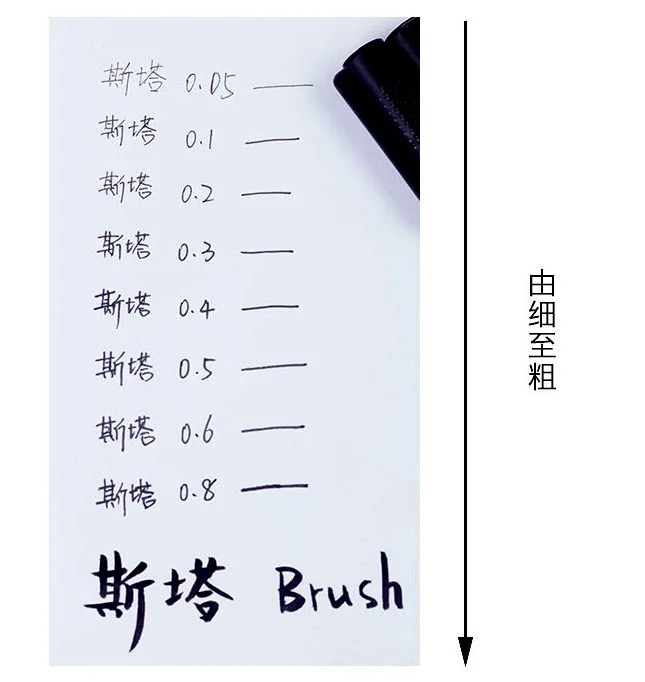 斯塔 0.05
斯塔 0.1
斯塔 0.2
斯塔 0.3
斯塔 0.4
斯塔 0.5
斯塔 0.6
斯塔 0.8
斯塔 Brush
由细至粗